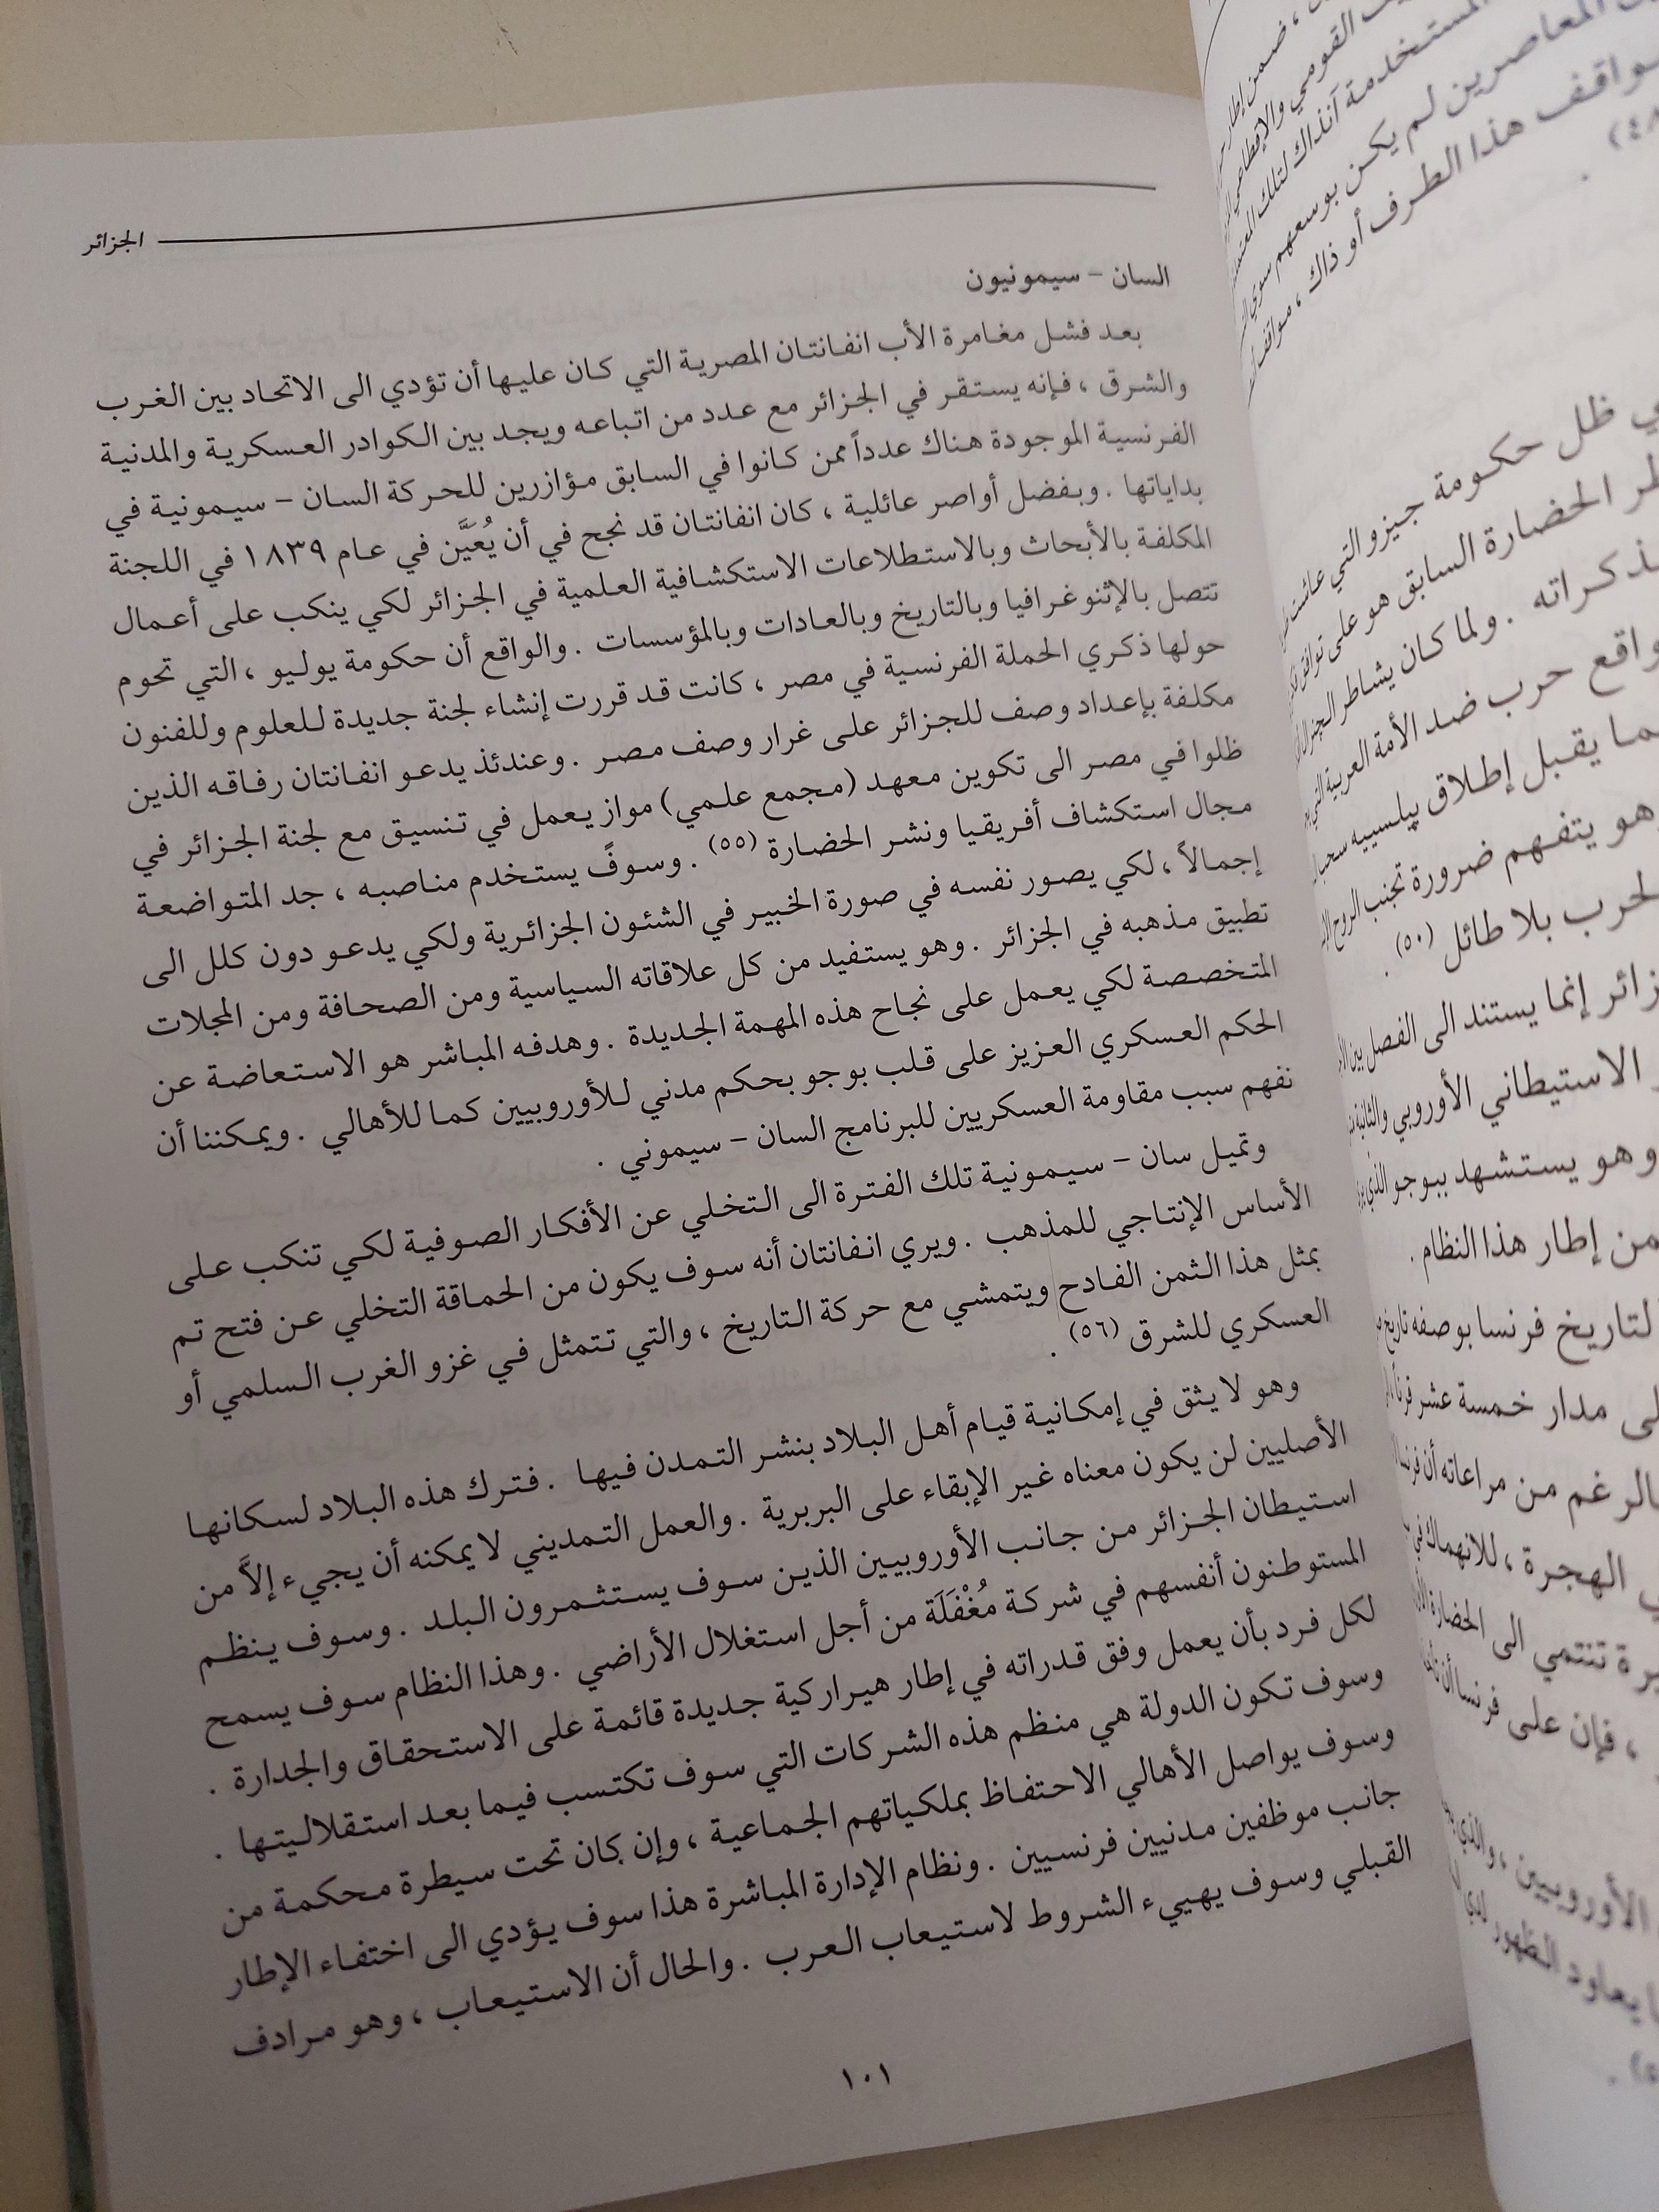 الجزائر
السان - سيمونيون
بعد فشل مغامرة الأب انفانتان المصرية التي كان عليها أن تؤدي الى الاتحاد بين الغرب
والشرق ، فإنه يستقر في الجزائر مع عدد من اتباعه ويجد بين الكوادر العسكرية والمدنية
الفرنسية الموجودة هناك عدداً ممن كانوا في السابق مؤازرين للحركة السان - سيمونية في
بداياتها . وبفضل أواصر عائلية ، كان انفانتان قد نجح في أن يُعَيَّن في عام ١٨٣٩ في اللجنة
المكلفة بالأبحاث وبالاستطلاعات الاستكشافية العلمية في الجزائر لكي ينكب على أعمال
تتصل بالإثنوغرافيا وبالتاريخ وبالعادات وبالمؤسسات . والواقع أن حكومة يوليو ، التي تحوم
حولها ذكري الحملة الفرنسية في مصر ، كانت قد قررت إنشاء لجنة جديدة للعلوم وللفنون
مكلفة بإعداد وصف للجزائر على غرار وصف مصر . وعندئذ يدعو انفانتان رفاقه الذين
ظلوا في مصر الى تكوين معهد (مجمع علمي) مواز يعمل في تنسيق مع لجنة الجزائر في
مجال استكشاف أفريقيا ونشر الحضارة (٥٥) . وسوف يستخدم مناصبه ، جد المتواضعة
إجمالاً ، لكي يصور نفسه في صورة الخبير في الشئون الجزائرية ولكي يدعو دون كلل الى
تطبيق مذهبه في الجزائر . وهو يستفيد من كل علاقاته السياسية ومن الصحافة ومن المجلات
المتخصصة لكي يعمل على نجاح هذه المهمة الجديدة . وهدفه المباشر هو الاستعاضة عن
الحكم العسكري العزيز على قلب بوجو بحكم مدني للأوروبيين كما للأهالي . ويمكننا أن
نفهم سبب مقاومة العسكريين للبرنامج السان - سيموني .
وتميل سان - سيمونية تلك الفترة الى التخلي عن الأفكار الصوفية لكي تنكب على
الأساس الإنتاجي للمذهب . ويري انفانتان أنه سوف يكون من الحماقة التخلي عن فتح تم
بمثل هذا الثمن الفادح ويتمشي مع حركة التاريخ ، والتي تتمثل في غزو الغرب السلمي أو
العسكري للشرق (٥٦) .
وهو لا يثق في إمكانية قيام أهل البلاد بنشر التمدن فيها . فترك هذه البلاد لسكانها
الأصليين لن يكون معناه غير الإبقاء على البربرية . والعمل التمديني لا يمكنه أن يجيء إلاَّ من
استيطان الجزائر من جانب الأوروبيين الذين سوف يستثمرون البلد . وسوف ينظم
المستوطنون أنفسهم في شركة مُغْفَلَة من أجل استغلال الأراضي . وهذا النظام سوف يسمح
لكل فرد بأن يعمل وفق قدراته في إطار هيراركية جديدة قائمة على الاستحقاق والجدارة .
وسوف تكون الدولة هي منظم هذه الشركات التي سوف تكتسب فيما بعد استقلاليتها .
وسوف يواصل الأهالي الاحتفاظ بملكياتهم الجماعية ، وإن كان تحت سيطرة محكمة من
جانب موظفين مدنيين فرنسيين . ونظام الإدارة المباشرة هذا سوف يؤدي الى اختفاء الإطار
القبلي وسوف يهييء الشروط لاستيعاب العرب . والحال أن الاستيعاب ، وهو مرادف
١٠١
ضمن إطار
القومي والإقطاعي
المستخدمة آنذاك لتلك
المعاصرين لم يكن بوسعهم سوي
هذا الطرف أو ذاك ،
ظل حكومة جيزو التي
الحضارة السابق هو على توافق
. ولما كان يشاطر
حرب ضد الأمة العربية
يقبل إطلاق پيلسييه
يتفهم ضرورة تجنب الروح
بلا طائل (٥٠) .
إنما يستند الى الفصل بين
الاستيطاني الأوروبي والثانية
وهو يستشهد ببوجو الذي
من إطار هذا النظام .
لتاريخ فرنسا بوصفه تاريخ
مدار خمسة عشر قرنا
من مراعاته أن فرنسا
الهجرة ، للانهماك في
تنتمي الى الحضارة
، فإن على فرنسا أن
الأوروبيين ، والذي
يعاود الظهور لدي